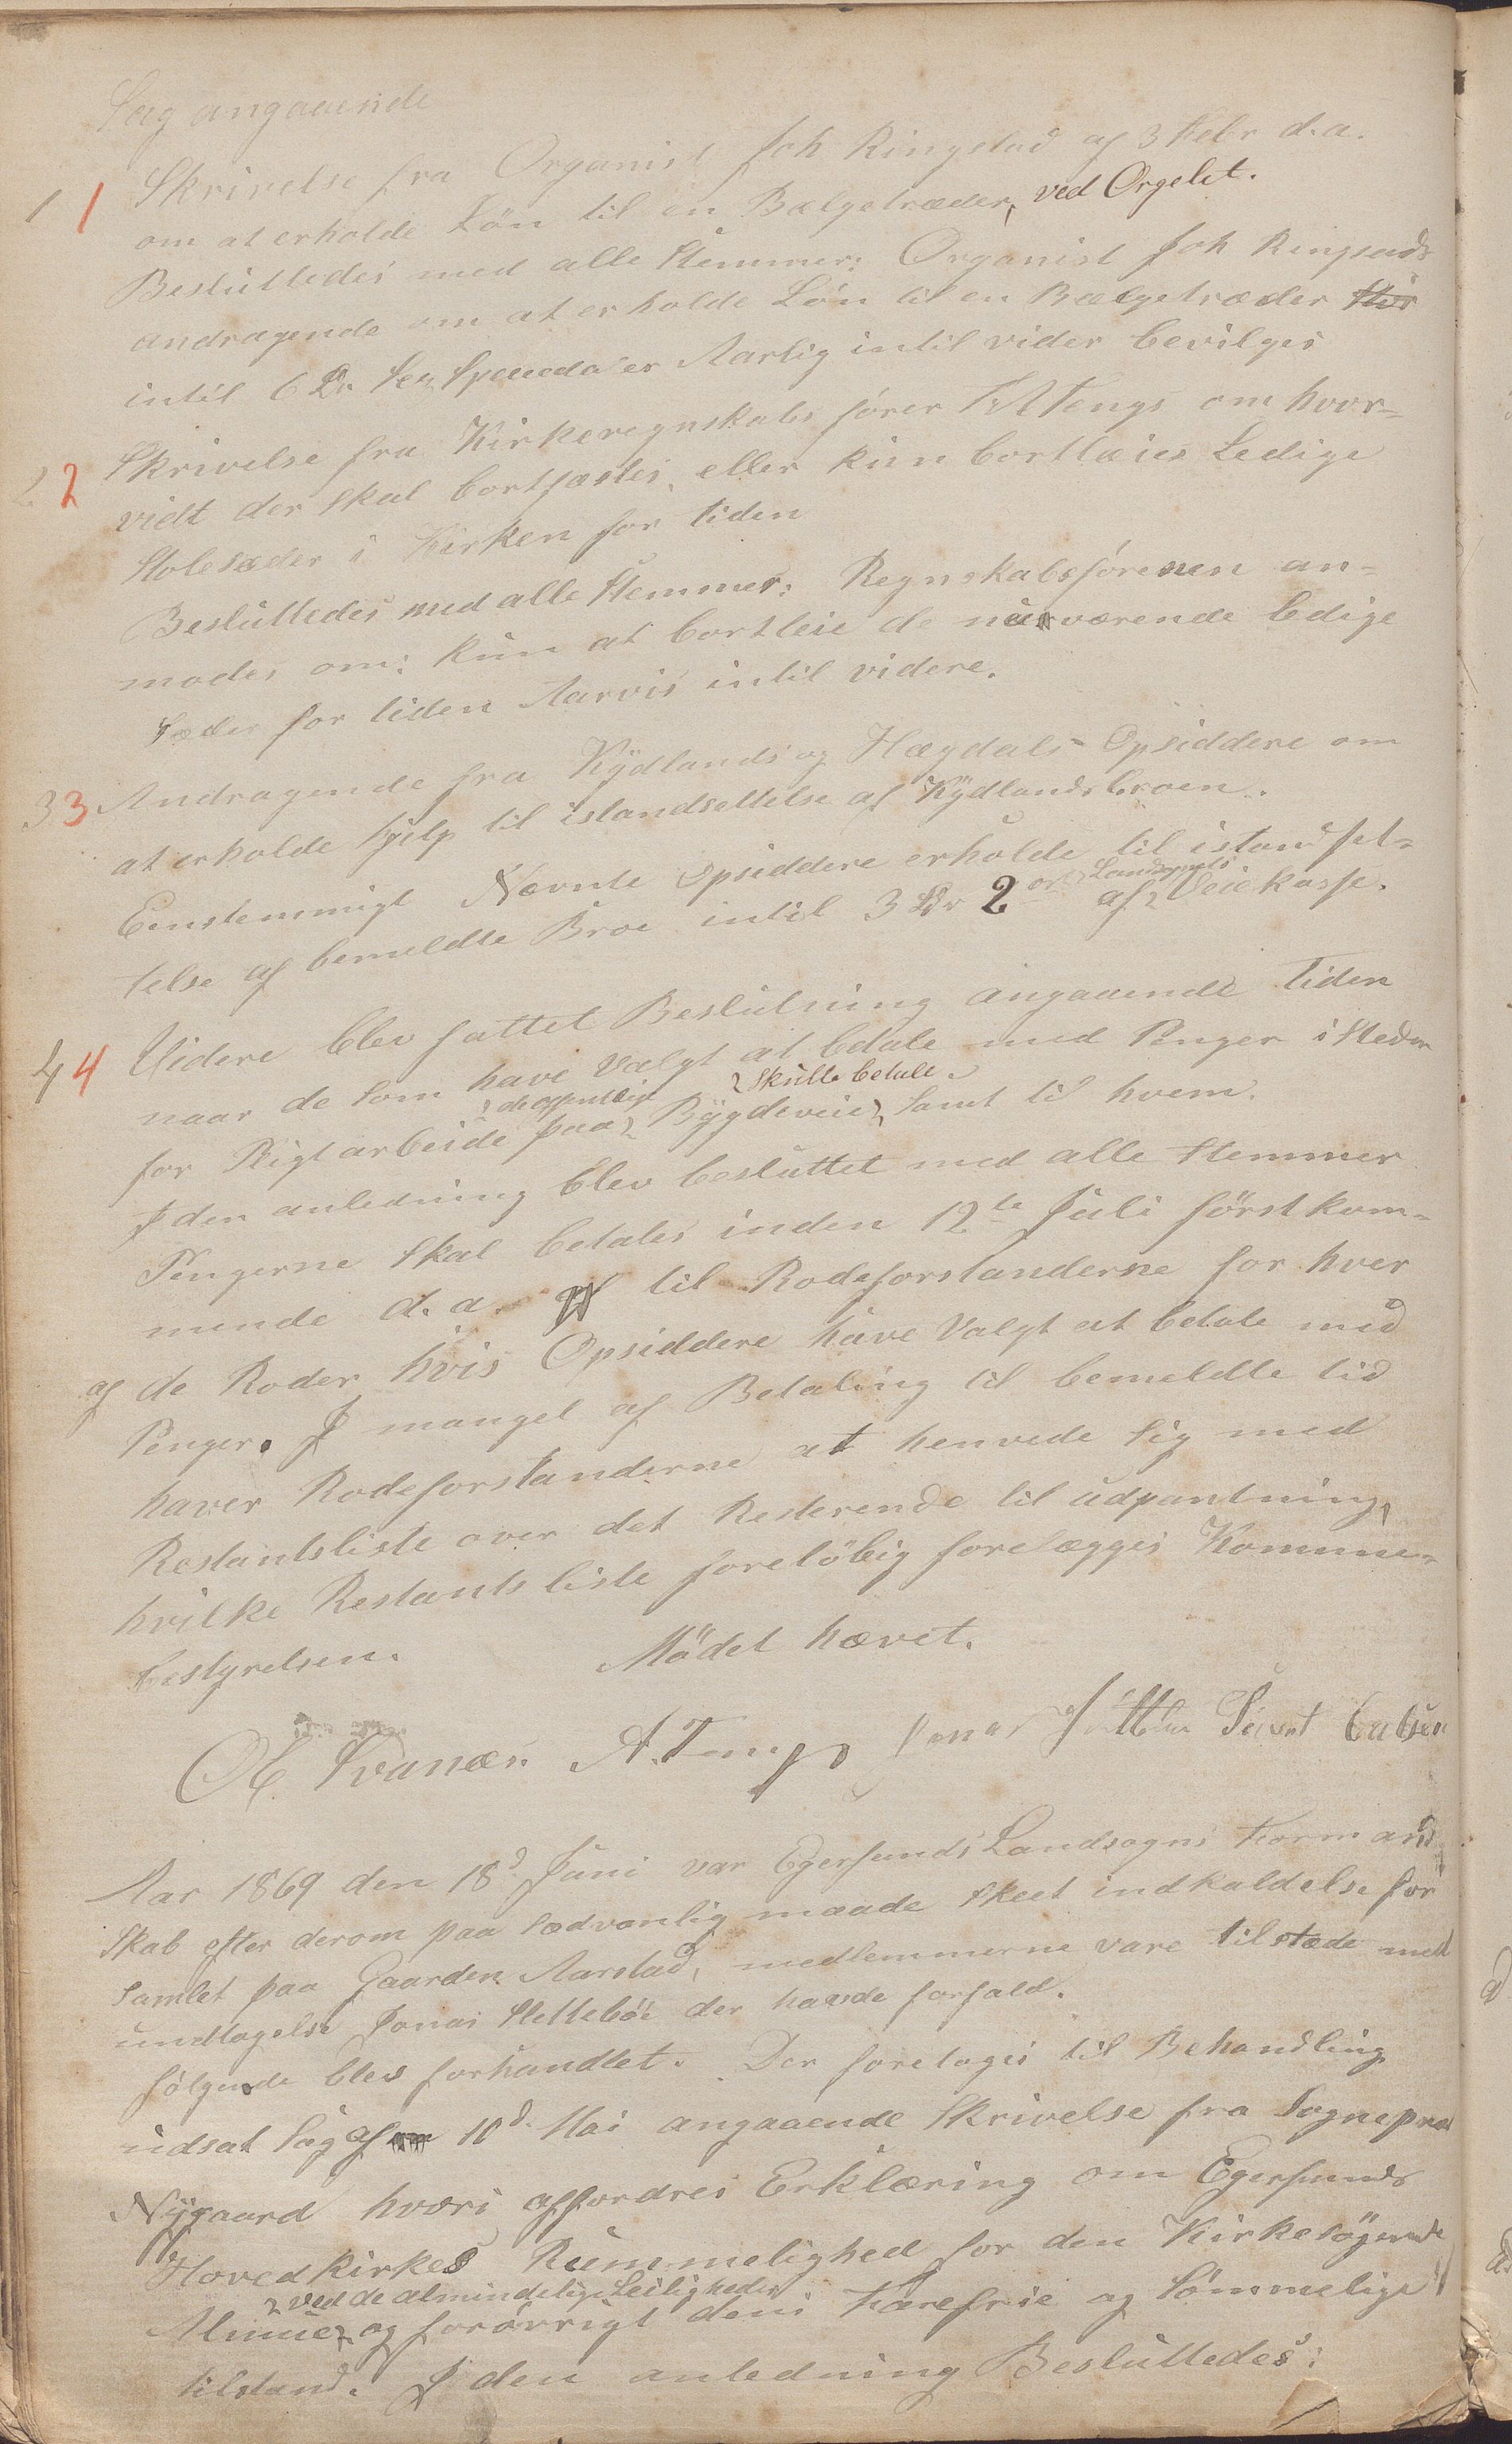 Sag angaaende
1 1 Skrivelse fra Organist Joh Ringstad af 3 Febr d.a.
om at erholde Løn til en Bælgetræder, ved Orgelet.
Besluttedes med alle Stemmer: Organist Joh Ringstads
andragende om at erholde Løn til en Bælgetræder
intil 6 Dr. Sex Speciedaler Aarlig intil vider bevilges
2 2 Skrivelse fra Kirkeregnskabs fører Tengs om hvor-
vidt der skal bortfæstes, eller kun bortlæies Ledige
Stolesæder i Kirken for tiden
Besluttedes med alle Stemmer: Regnskabsføreren an-
modes om: kun at bortleie de nuværende ledige
Sæder for tiden Aarvis intil videre.
3 3 Andragende fra Kydlands og Hægdals Opsiddere om
at erholde hjelp til istandsettelse af Kydlandsbroen.
Eenstemmigt Nævnte Opsiddere erholde til istandset-
telse af bemeldte Broe intil 3 Dr 2 ort af Landsognets Veiekasse.
4 4 Videre blev fattet Beslutning angaaende tiden
naar de som have valgt at betale med Penger i Steden
for Pligtarbeide paa de offentlige Bygdeveie, skulle betale. samt til hvem.
I den anledning blev besluttet med alle Stemmer
Pengerne skal betales inden 12te Juli førstkom-
mende d. a. til Rodeforstanderne for hver
af de Roder hvis Opsiddere have Valgt at betale med
Penger. I mangel af Betaling til bemeldte tid
haver Rodeforstanderne at henvede sig med
Restantsliste over det Resterende til udpantning,
hvilke Restants liste foreløbig forelægges Kommune-
bestyrelsen. Mødet hævet.
Ol. Svanæs. A. Tengs Jonas
Aar 1869 den 18d Juni var Egersunds Landsogns Formand
Skab efter derom paa sædvanlig maade skeet indkaldelse for
samlet paa Gaarden Aarstad, medlemmerne vare tilstæde med
undtagelse Jonas Slettebøe der havde forfald.
følgende blev forhandlet. Der foretoges til Behandling
udsat Sag af 10d. Mai angaaende Skrivelse fra Sognepræ
Nygaard hvori affordres Erklæring om Egersunds
Hovedkirkes Rummelighed for den Kirkesøgende
Almue ved de almindelige Leiligheder og forøvrigt dens farefrie og Sømmelige
tilstand. I den anledning Besluttedes: